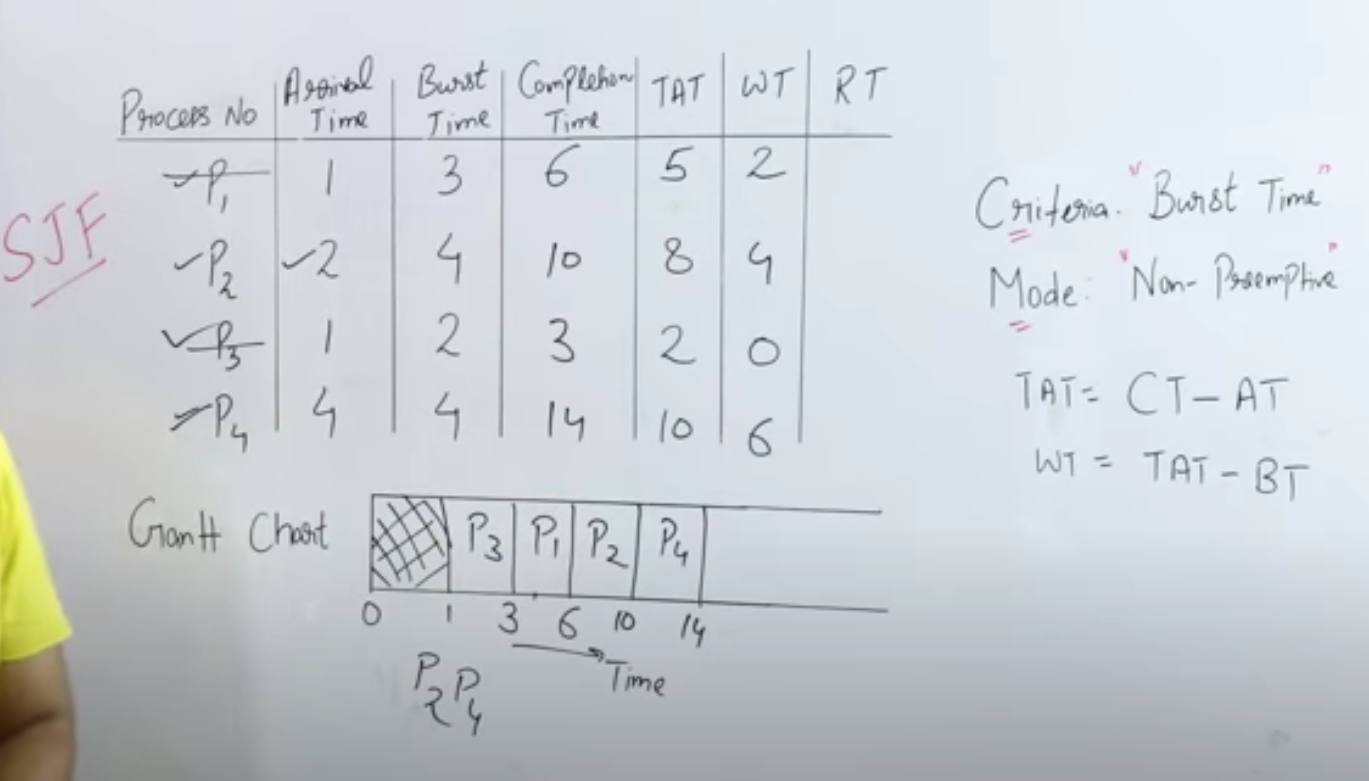 Process No Arrival Time Burst Time Completion Time TAT WT RT
P1 1 3 6 5 2
P2 2 4 10 8 4
P3 1 2 3 2 0
P4 4 4 14 10 6
SJF
Criteria: "Burst Time"
Mode: "Non-Preemptive"
TAT = CT - AT
WT = TAT - BT
Gantt Chart P3 P1 P2 P4
0 1 3 6 10 14
Time
P2 P4